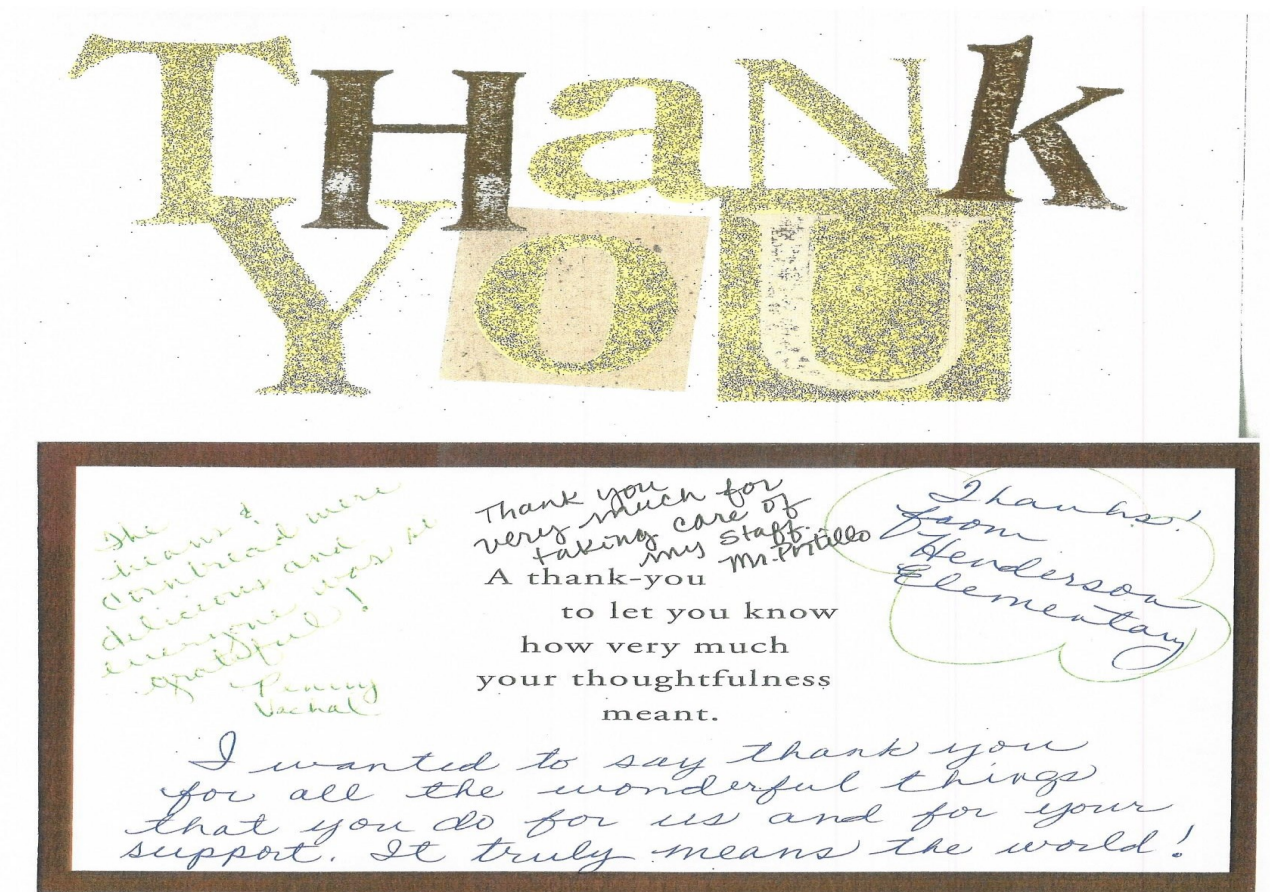 THaNk
YOU
The
beans &
cornbread were
delicious and
everyone was so
grateful!
Penny
Vachal
Thank you
very much for
taking care of
my staff.
Mr. Pritillo
Thanks!
from
Henderson
Elementary
A thank-you
to let you know
how very much
your thoughtfulness
meant.
I wanted to say thank you
for all the wonderful things
that you do for us and for your
support. It truly means the world!